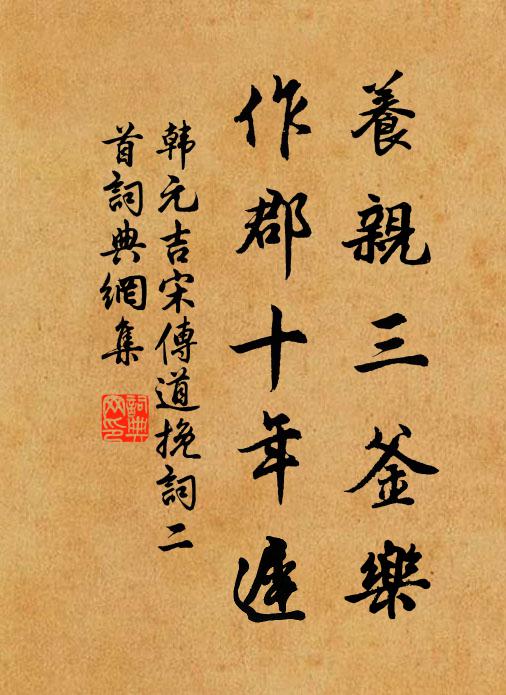 養親三釜樂
作郡十年遲
韩元吉宋傳道挽詞二
首詞典網集
詞典
网印